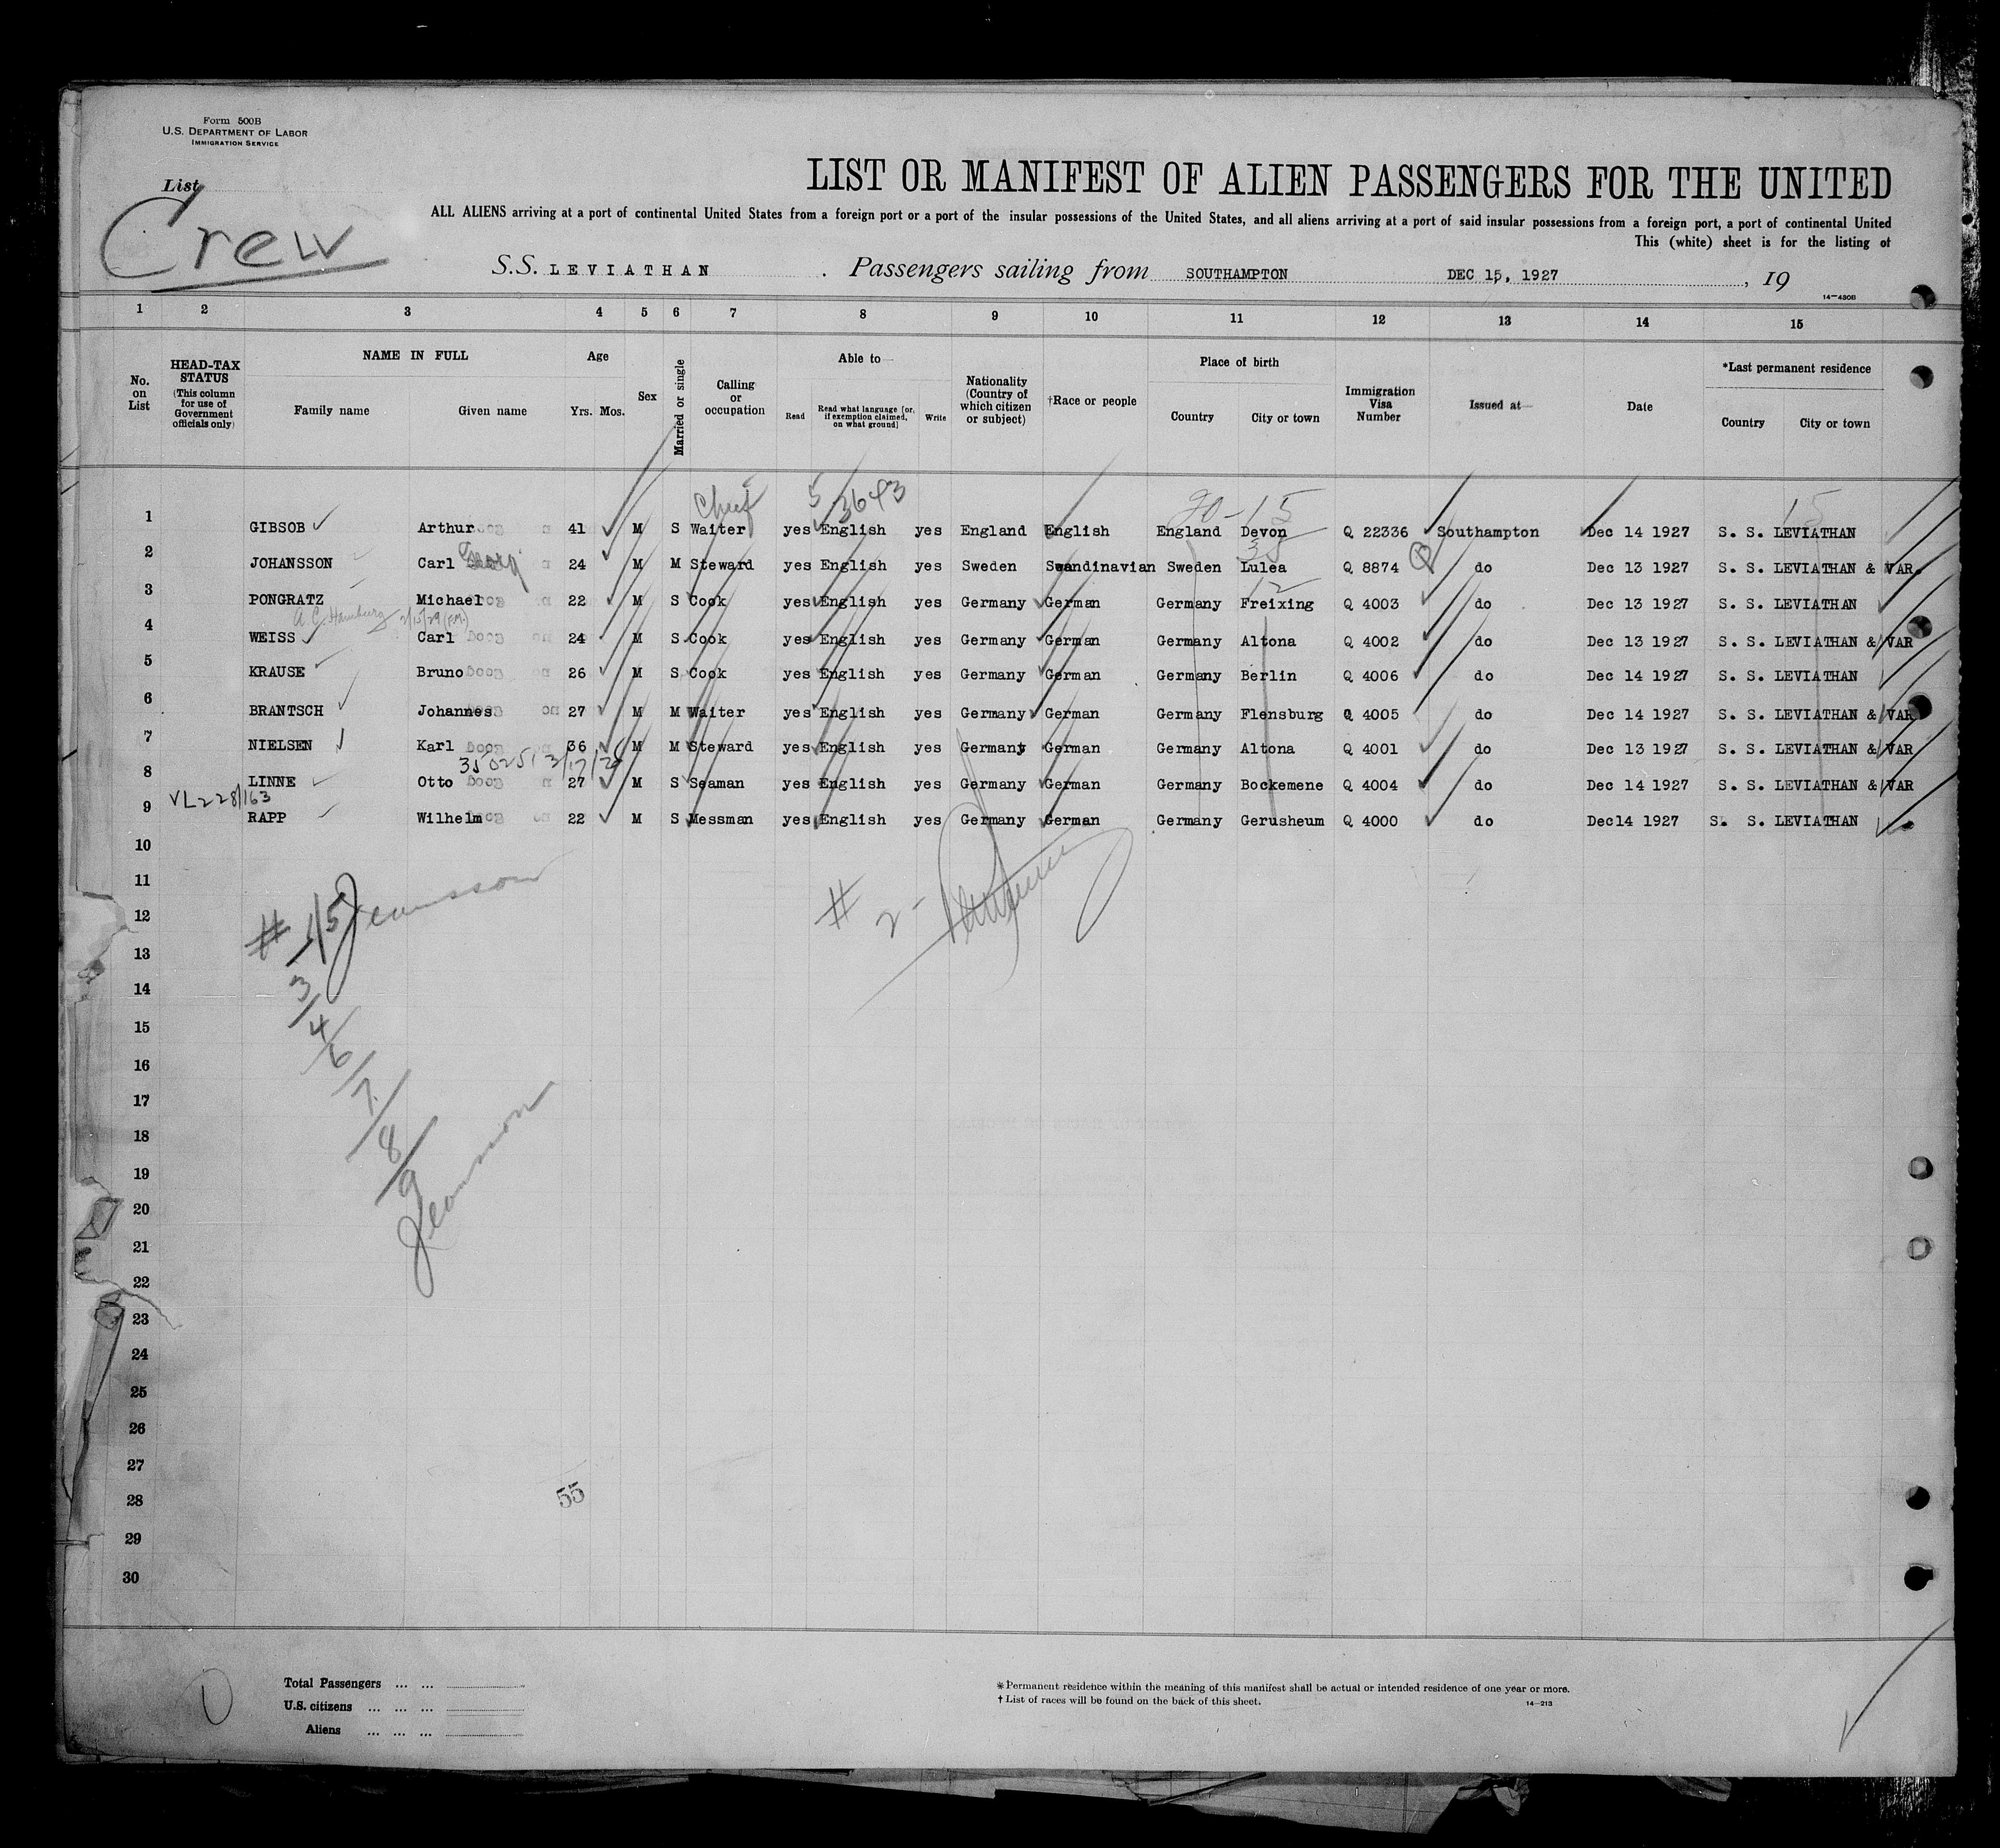 Form 500B
U.S. DEPARTMENT OF LABOR
IMMIGRATION SERVICE
List
Crew
LIST OR MANIFEST OF ALIEN PASSENGERS FOR THE UNITED
ALL ALIENS arriving at a port of continental United States from a foreign port or a port of the insular possessions of the United States, and all aliens arriving at a port of said insular possessions from a foreign port, a port of continental United
This (white) sheet is for the listing of
S.S. LEVIATHAN . Passengers sailing from SOUTHAMPTON DEC 15, 1927 , 19
14—430B
1 2 3 4 5 6 7 8 9 10 11 12 13 14 15
No. on List
HEAD-TAX STATUS (This column for use of Government officials only)
NAME IN FULL
Family name Given name
Age
Yrs. Mos.
Sex
Married or single
Calling or occupation
Able to—
Read Read what language [or, if exemption claimed, on what ground] Write
Nationality (Country of which citizen or subject)
†Race or people
Place of birth
Country City or town
Immigration Visa Number
Issued at—
Date
*Last permanent residence
Country City or town
Chief 5/3643 90-15 15
1 GIBSOB Arthur 41 M S Waiter yes English yes England English England Devon Q 22336 Southampton Dec 14 1927 S. S. LEVIATHAN
2 JOHANSSON Carl 24 M M Steward yes English yes Sweden Scandinavian Sweden Lulea Q 8874 do Dec 13 1927 S. S. LEVIATHAN & VAR.
3 PONGRATZ Michael 22 M S Cook yes English yes Germany German Germany Freixing Q 4003 do Dec 13 1927 S. S. LEVIATHAN
A. C. Hamburg 2/15/29 (F.M.)
4 WEISS Carl 24 M S Cook yes English yes Germany German Germany Altona Q 4002 do Dec 13 1927 S. S. LEVIATHAN & VAR
5 KRAUSE Bruno 26 M S Cook yes English yes Germany German Germany Berlin Q 4006 do Dec 14 1927 S. S. LEVIATHAN
6 BRANTSCH Johannes 27 M M Waiter yes English yes Germany German Germany Flensburg Q 4005 do Dec 14 1927 S. S. LEVIATHAN & VAR
7 NIELSEN Karl 36 M M Steward yes English yes Germany German Germany Altona Q 4001 do Dec 13 1927 S. S. LEVIATHAN & VAR
8 LINNE Otto 27 M S Seaman yes English yes Germany German Germany Bockemene Q 4004 do Dec 14 1927 S. S. LEVIATHAN & VAR
VL228/163
9 RAPP Wilhelm 22 M S Messman yes English yes Germany German Germany Gerusheum Q 4000 do Dec14 1927 S. S. LEVIATHAN
10
11
12 # 1/5 # 2-
13
14 3/
15 4/
16 6/
17 7/
18 8/
19 9
20
21
22
23
24
25
26
27
28 55
29
30
Total Passengers ... ...
U.S. citizens ... ... ...
Aliens ... ... ...
* Permanent residence within the meaning of this manifest shall be actual or intended residence of one year or more.
† List of races will be found on the back of this sheet.
14—213